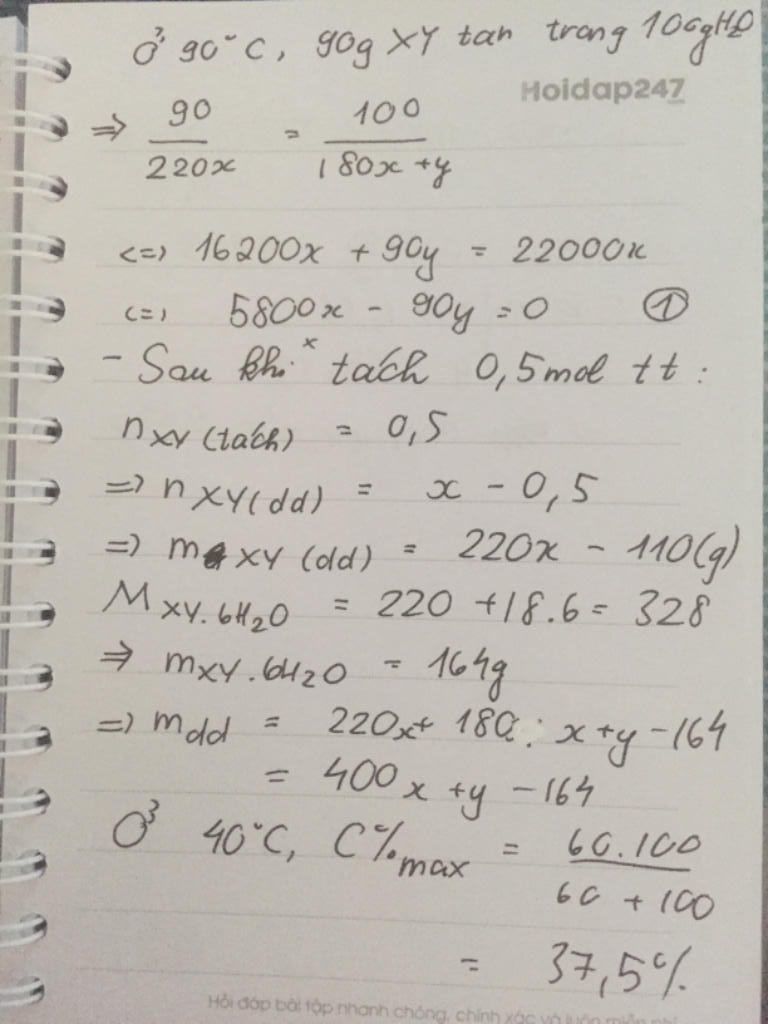 Ở 90°C, 90g XY tan trong 100gH2O
Hoidap247
=> 90/220x = 100/180x+y
<=> 16200x + 90y = 22000x
<=> 5800x - 90y = 0 ①
- Sau khi tách 0,5mol tt :
nXY(tách) = 0,5
=> nXY(dd) = x - 0,5
=> mXY(dd) = 220x - 110(g)
MXY.6H2O = 220 + 18.6 = 328
=> mXY.6H2O = 164g
=> mdd = 220x + 180 x + y - 164
= 400x + y - 164
Ở 40°C, C%max = 60.100/60 + 100
= 37,5%
Hỏi đáp bài tập nhanh chóng, chính xác và luôn miễn phí